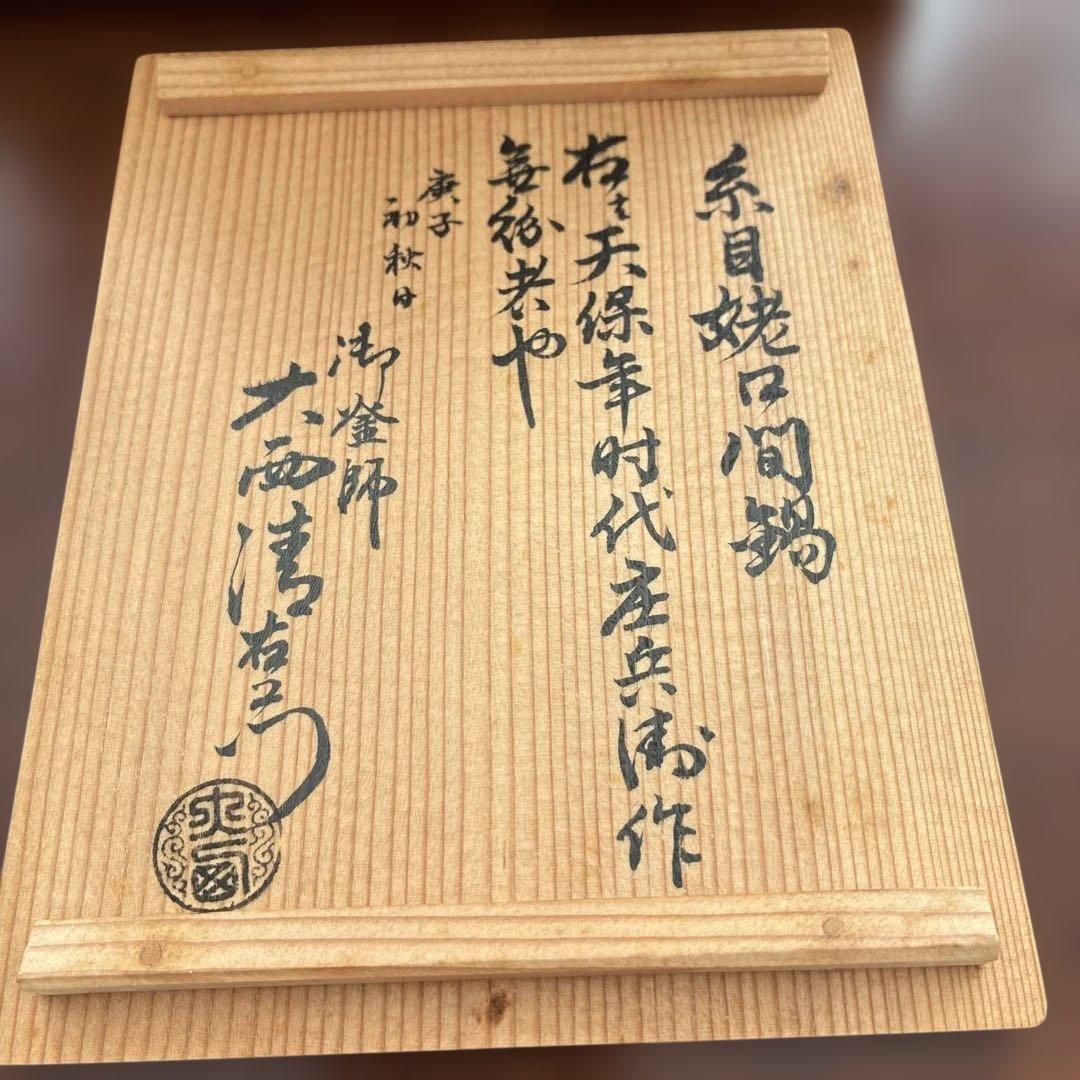 糸目姥口間鍋
右ハ天保年时代庄兵衛作
無紛者也
庚子
初秋日
御釜師
大西清右衛門
大西